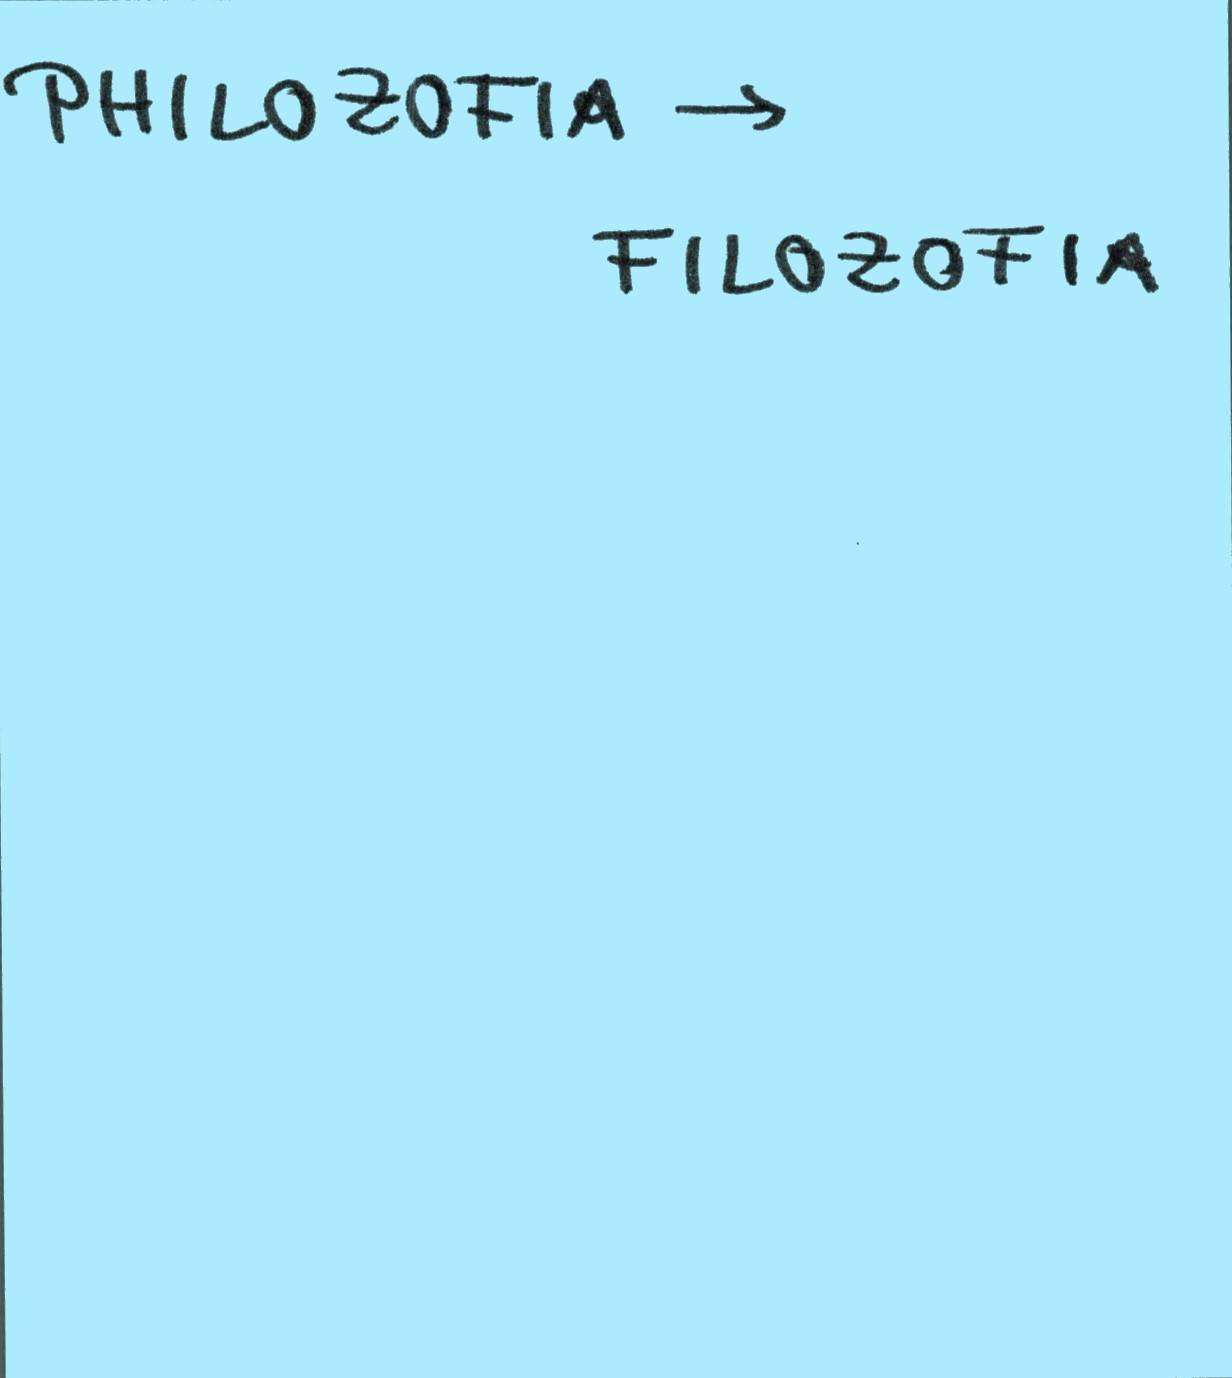 PHILOZOFIA →
FILOZOFIA